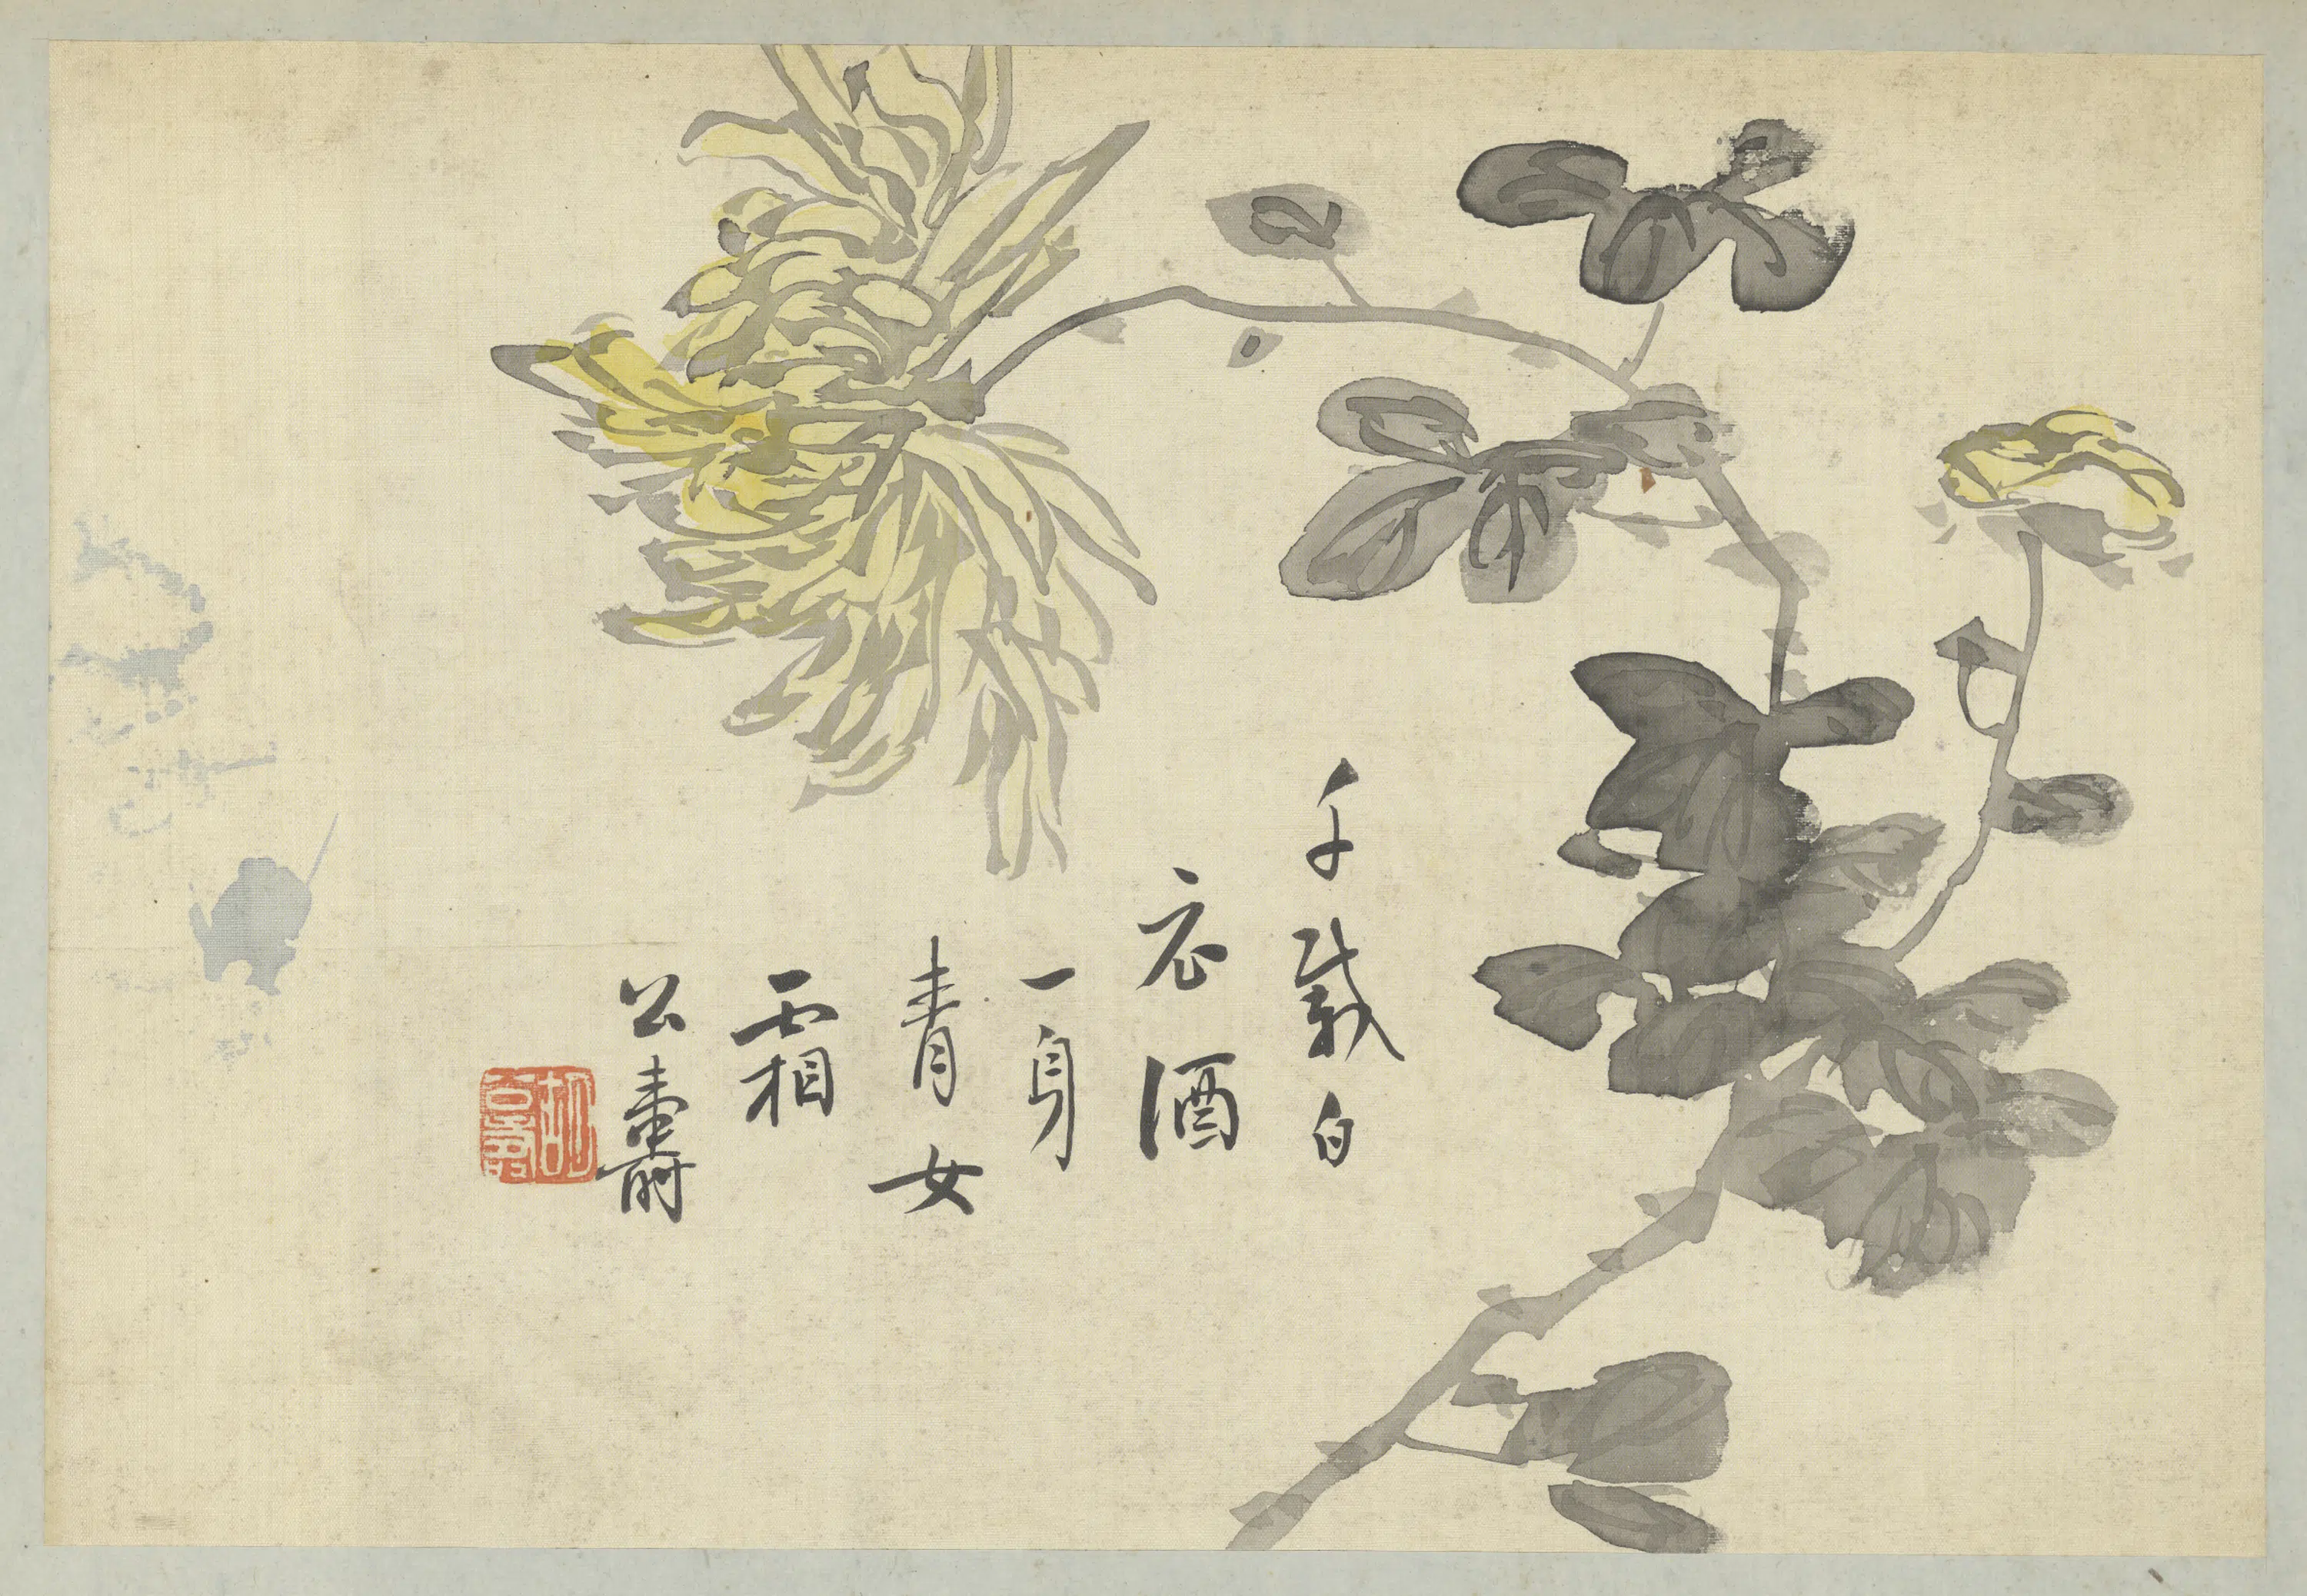 千載白
衣酒
一身
青女
霜
公壽
胡公壽